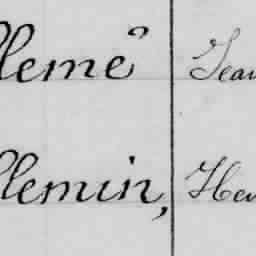 lemé Jean
llemin, Hen